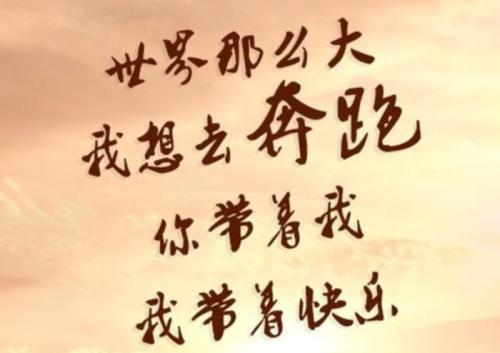 世界那么大
我想去奔跑
你带着我
我带着快乐